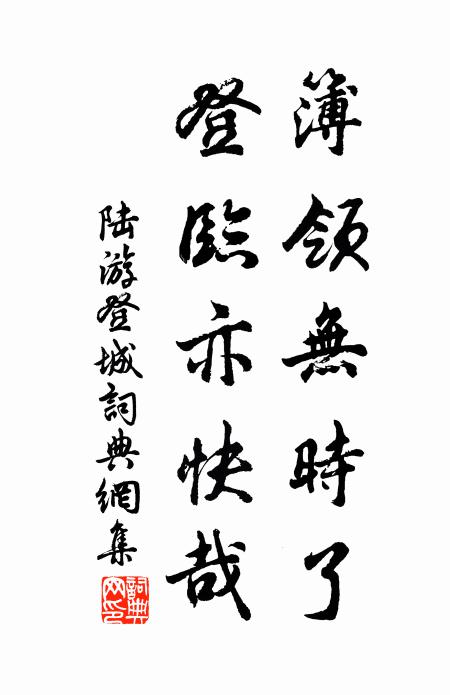 簿領無時了
登臨亦快哉
陸游登城詞典網集
詞典
网印